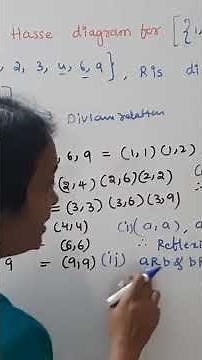 Hasse diagram for [{1,
2, 3, 4, 6, 9}, R is di
Divison relation
6, 9 = (1,1) (1,2)
(2,4) (2,6) (2,2)
= (3,3) (3,6) (3,9)
(4,4) (i) (a, a), a
= (6,6) ∴ Reflexi
9 = (9,9) (ij) aRb & bR